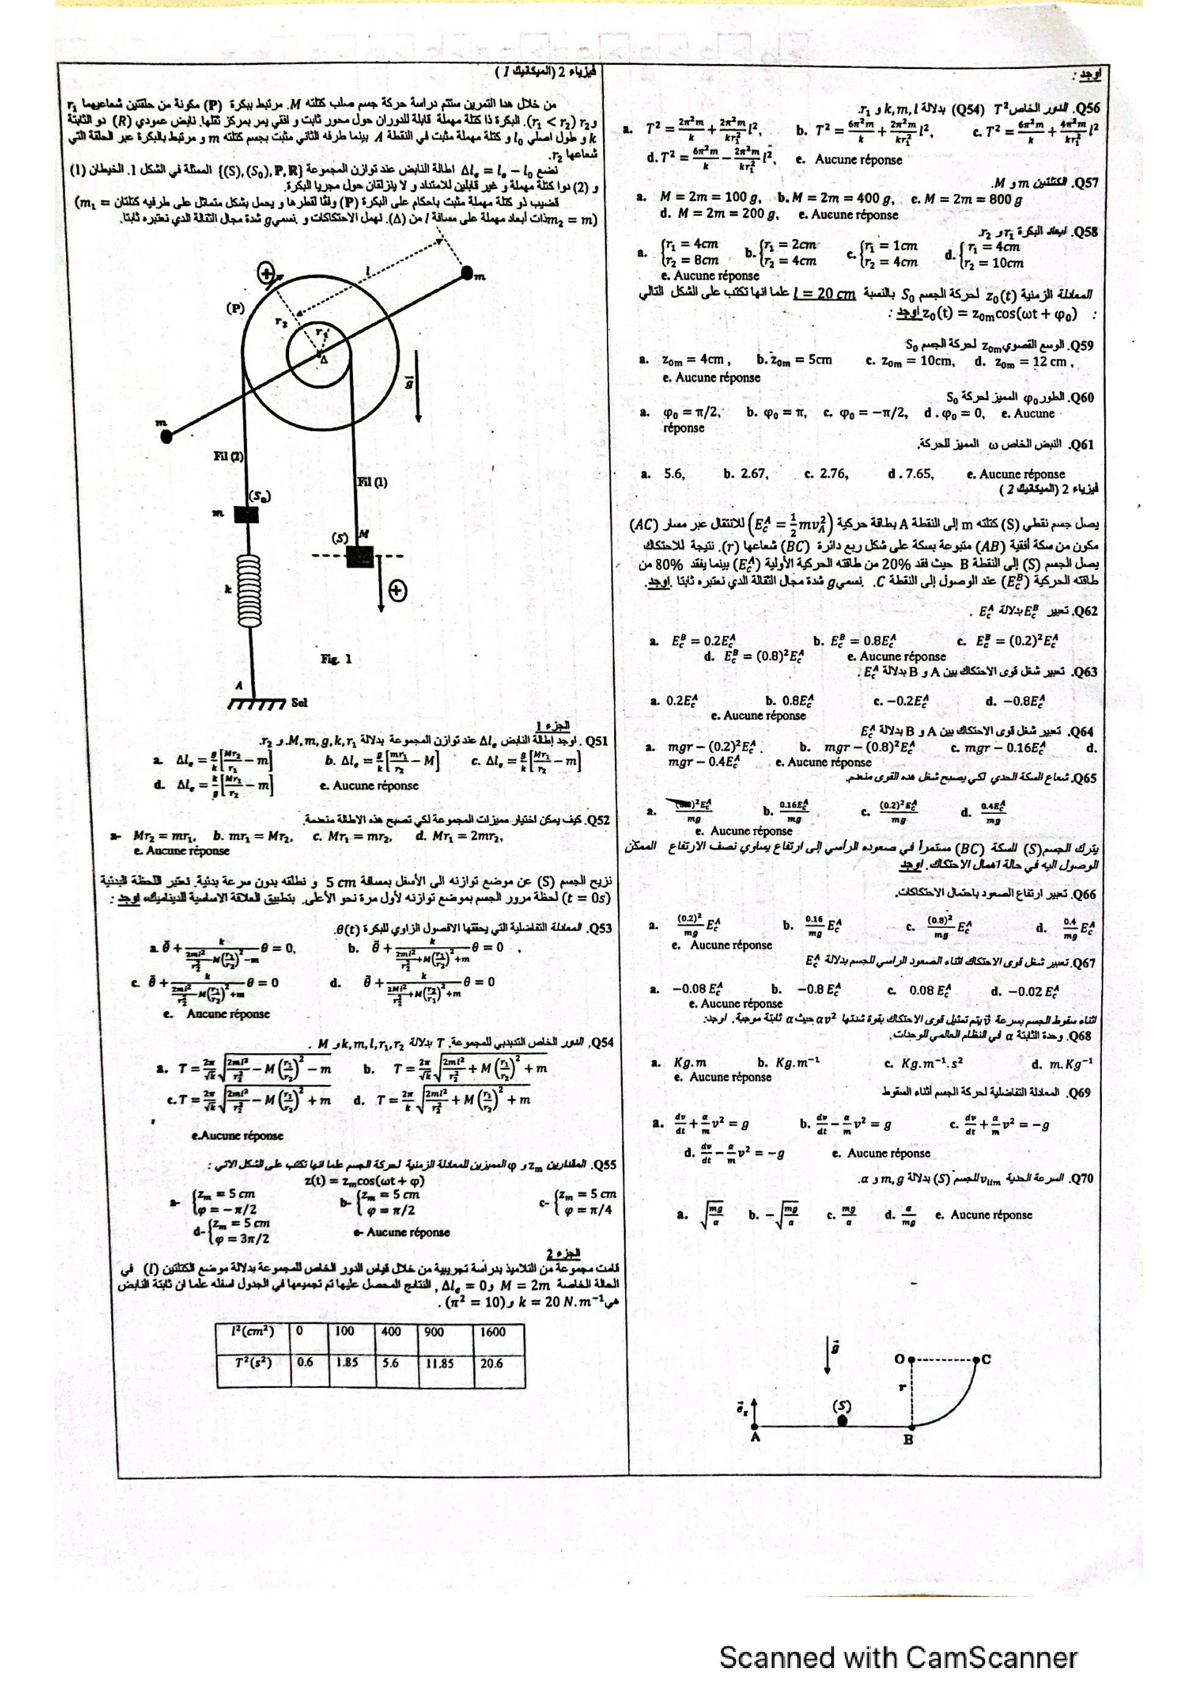 فيزياء 2 (الميكانيك 1)
من خلال هذا التمرين ستتم دراسة حركة جسم صلب كتلته M. مرتبط ببكرة (P) مكونة من حلقتين شعاعيهما r₁
و r₂ (r₁ < r₂). البكرة ذا كتلة مهملة قابلة للدوران حول محور ثابت و افقي يمر بمركز ثقلها. نابض عمودي (R) ذو الثابتة
k و طول اصلي l₀ و كتلة مهملة مثبت في النقطة A بينما طرفه الثاني مثبت بجسم كتلته m و مرتبط بالبكرة عبر الحلقة التي
شعاعها r₂.
نضع Δlₑ = lₑ − l₀ اطالة النابض عند توازن المجموعة {(S), (S₀), P, R} الممثلة في الشكل 1. الخيطان (1)
و (2) ذوا كتلة مهملة و غير قابلين للامتداد و لا ينزلقان حول مجريا البكرة.
قضيب ذو كتلة مهملة مثبت باحكام على البكرة (P) وفقا لقطرها و يحمل بشكل متماثل على طرفيه كتلتان (m₁ =
m₂ = m) ذات أبعاد مهملة على مسافة l من (Δ). نهمل الاحتكاكات و نسمي g شدة مجال الثقالة الذي نعتبره ثابتا.
(P)
l
m
r₂
r₁
Δ
g⃗
m
Fil (2)
Fil (1)
(S₀)
m
(S) M
k
Fig. 1
A
Sol
الجزء 1
Q51. اوجد إطالة النابض Δlₑ عند توازن المجموعة بدلالة M, m, g, k, r₁ و r₂.
a. Δlₑ = g/k [Mr₂/r₁ − m] b. Δlₑ = g/k [mr₁/r₂ − M] c. Δlₑ = g/k [Mr₁/r₂ − m]
d. Δlₑ = k/g [Mr₁/r₂ − m] e. Aucune réponse
Q52. كيف يمكن اختيار مميزات المجموعة لكي تصبح هذه الاطالة منعدمة.
a- Mr₂ = mr₁, b. mr₁ = Mr₂, c. Mr₁ = mr₂, d. Mr₁ = 2mr₂,
e. Aucune réponse
نزيح الجسم (S) عن موضع توازنه الى الأسفل بمسافة 5 cm و نطلقه بدون سرعة بدئية. نعتبر اللحظة البدئية
(t = 0s) لحظة مرور الجسم بموضع توازنه لأول مرة نحو الأعلى. بتطبيق العلاقة الاساسية للديناميك، اوجد :
Q53. المعادلة التفاضلية التي يحققها الافصول الزاوي للبكرة θ(t).
a. θ̈ + k/(2ml²/r₂² − M(r₁/r₂)² − m) θ = 0, b. θ̈ + k/(2ml²/r₂² + M(r₁/r₂)² + m) θ = 0 ,
c. θ̈ + k/(2ml²/r₂² − M(r₂/r₁)² + m) θ = 0 d. θ̈ + k/(2Ml²/r₂² + M(r₂/r₁)² + m) θ = 0
e. Aucune réponse
Q54. الدور الخاص التذبذبي للمجموعة. T بدلالة k, m, l, r₁, r₂ و M .
a. T = 2π/√k √(2ml²/r₂² − M(r₁/r₂)² − m) b. T = 2π/√k √(2ml²/r₂² + M(r₁/r₂)² + m)
c. T = 2π/√k √(2ml²/r₂² − M(r₁/r₂)² + m) d. T = 2π/k √(2ml²/r₂² + M(r₁/r₂)² + m)
e.Aucune réponse
Q55. المقدارين zₘ و φ المميزين للمعادلة الزمنية لحركة الجسم علما انها تكتب على الشكل الاتي :
z(t) = zₘcos(ωt + φ)
a- {zₘ = 5 cm φ = −π/2 b- {zₘ = 5 cm φ = π/2 c- {zₘ = 5 cm φ = π/4
d- {zₘ = 5 cm φ = 3π/2 e- Aucune réponse
الجزء 2
قامت مجموعة من التلاميذ بدراسة تجريبية من خلال قياس الدور الخاص للمجموعة بدلالة موضع الكتلتين (l) في
الحالة الخاصة M = 2m و Δlₑ = 0, النتائج المحصل عليها تم تجميعها في الجدول اسفله علما ان ثابتة النابض
هي k = 20 N.m⁻¹ و (π² = 10) .
l²(cm²) 0 100 400 900 1600
T²(s²) 0.6 1.85 5.6 11.85 20.6
اوجد :
Q56. الدور الخاص T² (Q54) بدلالة k, m, l و r₁.
a. T² = 2π²m/k + 2π²m/kr₁² l², b. T² = 6π²m/k + 2π²m/kr₁² l², c. T² = 6π²m/k + 4π²m/kr₁² l²
d. T² = 6π²m/k − 2π²m/kr₁² l², e. Aucune réponse
Q57. الكتلتين m و M.
a. M = 2m = 100 g, b. M = 2m = 400 g, c. M = 2m = 800 g
d. M = 2m = 200 g, e. Aucune réponse
Q58. ابعاد البكرة r₁ و r₂.
a. {r₁ = 4cm r₂ = 8cm b. {r₁ = 2cm r₂ = 4cm c. {r₁ = 1cm r₂ = 4cm d. {r₁ = 4cm r₂ = 10cm
e. Aucune réponse
المعادلة الزمنية z₀(t) لحركة الجسم S₀ بالنسبة l = 20 cm علما انها تكتب على الشكل التالي
: z₀(t) = z₀ₘcos(ωt + φ₀) اوجد :
Q59. الوسع القصوي z₀ₘ لحركة الجسم S₀
a. z₀ₘ = 4cm , b. z₀ₘ = 5cm c. z₀ₘ = 10cm, d. z₀ₘ = 12 cm ,
e. Aucune réponse
Q60. الطور φ₀ المميز لحركة S₀
a. φ₀ = π/2, b. φ₀ = π, c. φ₀ = −π/2, d . φ₀ = 0, e. Aucune
réponse
Q61. النبض الخاص ω المميز للحركة.
a. 5.6, b. 2.67, c. 2.76, d . 7.65, e. Aucune réponse
فيزياء 2 (الميكانيك 2)
يصل جسم نقطي (S) كتلته m إلى النقطة A بطاقة حركية (E_c^A = ½mv_A²) للانتقال عبر مسار (AC)
مكون من سكة أفقية (AB) متبوعة بسكة على شكل ربع دائرة (BC) شعاعها (r). نتيجة للاحتكاك
يصل الجسم (S) إلى النقطة B حيث فقد 20% من طاقته الحركية الأولية (E_c^A) بينما يفقد 80% من
طاقته الحركية (E_c^B) عند الوصول إلى النقطة C. نسمي g شدة مجال الثقالة الذي نعتبره ثابتا. اوجد.
Q62. تعبير E_c^B بدلالة E_c^A .
a. E_c^B = 0.2E_c^A b. E_c^B = 0.8E_c^A c. E_c^B = (0.2)²E_c^A
d. E_c^B = (0.8)²E_c^A e. Aucune réponse
Q63. تعبير شغل قوى الاحتكاك بين A و B بدلالة E_c^A .
a. 0.2E_c^A b. 0.8E_c^A c. −0.2E_c^A d. −0.8E_c^A
e. Aucune réponse
Q64. تعبير شغل قوى الاحتكاك بين A و B بدلالة E_c^A
a. mgr − (0.2)²E_c^A . b. mgr − (0.8)²E_c^A c. mgr − 0.16E_c^A d.
mgr − 0.4E_c^A . e. Aucune réponse
Q65. شعاع السكة الحدي لكي يصبح شغل هذه القوى منعدم.
a. )²E_c^A/mg b. 0.16E_c^A/mg c. (0.2)²E_c^A/mg d. 0.4E_c^A/mg
e. Aucune réponse
يترك الجسم (S) السكة (BC) مستمرا في صعوده الرأسي إلى ارتفاع يساوي نصف الارتفاع الممكن
الوصول اليه في حالة اهمال الاحتكاك. اوجد
Q66. تعبير ارتفاع الصعود باحتمال الاحتكاكات.
a. (0.2)²/mg E_c^A b. 0.16/mg E_c^A c. (0.8)²/mg E_c^A d. 0.4/mg E_c^A
e. Aucune réponse
Q67. تعبير شغل قوى الاحتكاك اثناء الصعود الراسي للجسم بدلالة E_c^A
a. −0.08 E_c^A b. −0.8 E_c^A c. 0.08 E_c^A d. −0.02 E_c^A
e. Aucune réponse
اثناء سقوط الجسم بسرعة v⃗ يتم تمثيل قوى الاحتكاك بقوة شدتها αv² حيث α ثابتة موجبة. اوجد:
Q68. وحدة الثابتة α في النظام العالمي للوحدات.
a. Kg.m b. Kg.m⁻¹ c. Kg.m⁻¹.s² d. m.Kg⁻¹
e. Aucune réponse
Q69. المعادلة التفاضلية لحركة الجسم أثناء السقوط
a. dv/dt + α/m v² = g b. dv/dt − α/m v² = g c. dv/dt + α/m v² = −g
d. dv/dt − α/m v² = −g e. Aucune réponse
Q70. السرعة الحدية v_lim للجسم (S) بدلالة m, g و α.
a. √(mg/α) b. −√(mg/α) c. mg/α d. α/mg e. Aucune réponse
g⃗
O C
r
e⃗_z (S)
A B
Scanned with CamScanner